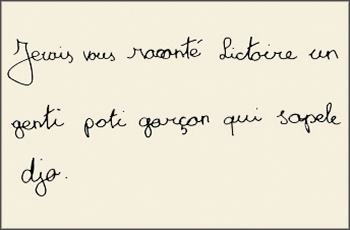 Jevais vous raconté lictoire un
genti poti garçon qui sapele
djo.